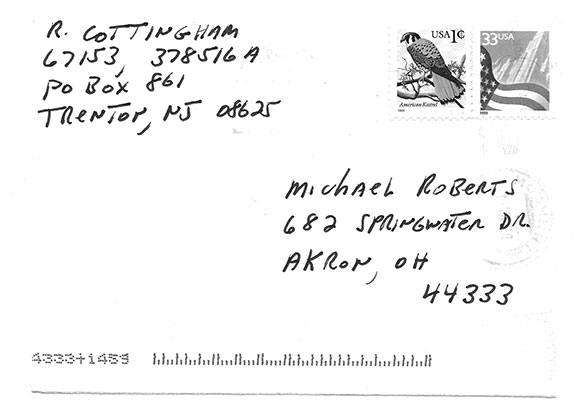 R. COTTINGHAM
67153, 378516A
PO BOX 861
TRENTON, NJ 08625
USA 1¢
American Kestrel
33 USA
MICHAEL ROBERTS
682 SPRINGWATER DR.
AKRON, OH
44333
4333+1459